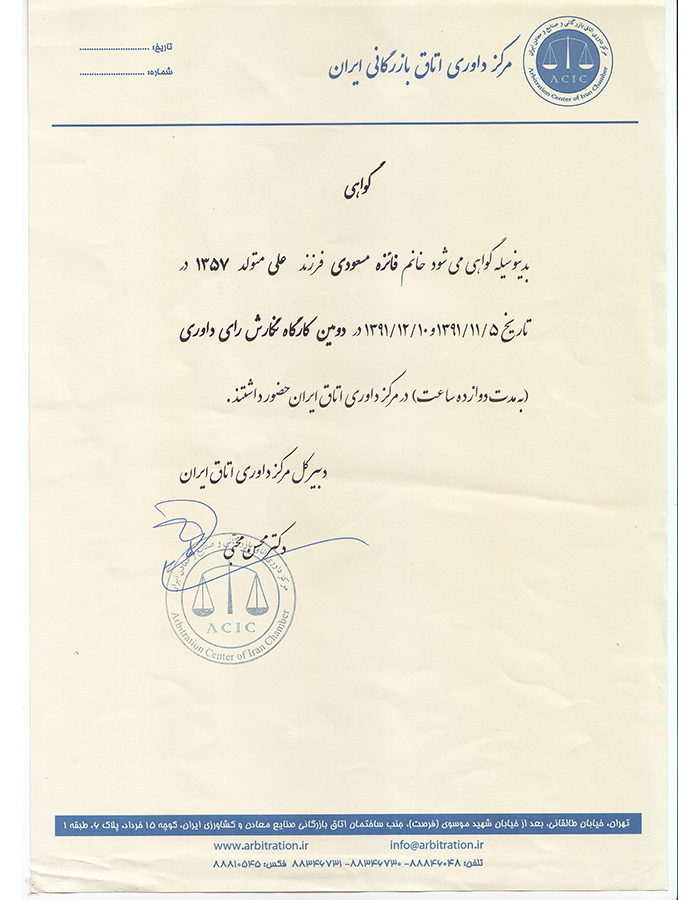 مرکز داوری اتاق بازرگانی و صنایع و معادن ایران
ACIC
Arbitration Center of Iran Chamber
مرکز داوری اتاق بازرگانی ایران
تاریخ: ............................
شماره: ..........................
گواهی
بدینوسیله گواهی می شود خانم فائزه مسعودی فرزند علی متولد ۱۳۵۷ در
تاریخ ۱۳۹۱/۱۱/۵ و ۱۳۹۱/۱۲/۱۰ در دومین کارگاه نگارش رای داوری
(به مدت دوازده ساعت) در مرکز داوری اتاق ایران حضور داشتند.
دبیرکل مرکز داوری اتاق ایران
دکتر محسن محبی
مرکز داوری اتاق بازرگانی و صنایع و معادن ایران
ACIC
Arbitration Center of Iran Chamber
تهران، خیابان طالقانی، بعد از خیابان شهید موسوی (فرصت)، جنب ساختمان اتاق بازرگانی صنایع معادن و کشاورزی ایران، کوچه ۱۵ خرداد، پلاک ۶، طبقه ۱
www.arbitration.ir info@arbitration.ir
تلفن: ۸۸۸۴۶۰۴۸- ۸۸۳۴۶۷۳۰- ۸۸۳۴۶۷۳۱ فکس: ۸۸۸۱۰۵۴۵